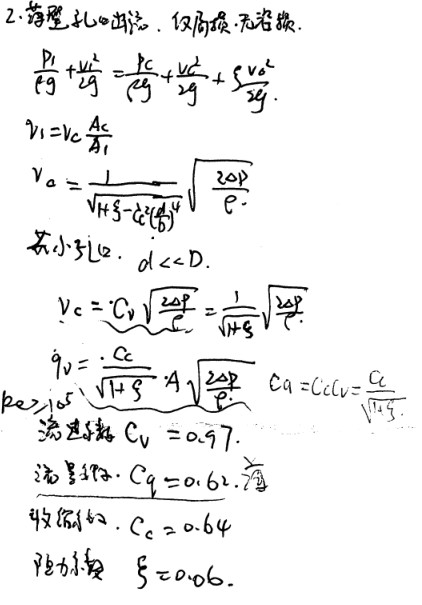 2.薄壁孔口出流.仅局损.无沿损.
p₁/ρg + v₁²/2g = pc/ρg + vc²/2g + ξ vc²/2g.
v₁=vc Ac/A₁
vc = 1/√(1+ξ-Cc²(d/D)⁴) √(2Δp/ρ)
若小孔口. d<<D.
vc = Cv √(2Δp/ρ) = 1/√(1+ξ) √(2Δp/ρ)
qv = Cc/√(1+ξ) · A √(2Δp/ρ) Cq=CcCv=Cc/√(1+ξ).
Re≥10⁵
流速系数 Cv=0.97.
流量系数. Cq=0.62.
收缩系数. Cc=0.64
阻力系数 ξ=0.06.